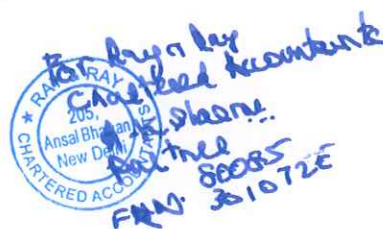 For Ray & Ray
Chartered Accountants
Sharma
Partner
80085
FRN. 301072E
RAY & RAY
205,
Ansal Bhawan
New Delhi
CHARTERED ACCOUNTANTS